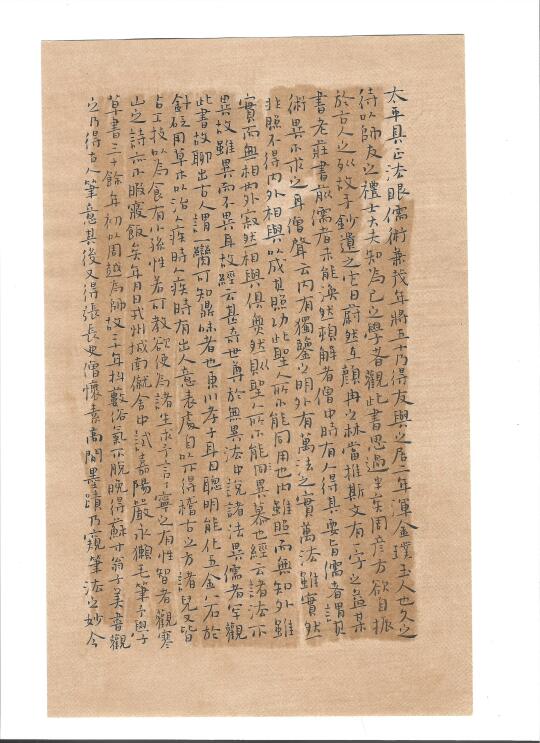 太平具正法眼儒術兼茂年將五十乃得友與之居二年渾金璞玉人也久之
待以師友之禮士大夫知為己之學者觀此書思過半矣周彥方欲自振
於古人之列故手鈔遺之它日蔚然在顏冉之林當推斯文有一字之益某
書老莊書前儒者未能渙然頓解者僧中時有人得其要旨儒者謂其
術異不求之耳僧肇云內有獨鑒之明外有萬法之實萬法雖實然
非照不得內外相與以成其照功此聖人所不能同用也內雖照而無知外雖
實而無相內外寂然相與俱無然則聖人所不能同異也經云諸法不
異故雖異而不異耳故經云甚奇世尊於無異法中說諸法異儒者罕觀
此書故聊出古人謂臠可知鼎味者也東川孝子耳目聰明能化五金八石於
針砭用草木以治人疾時人疾時有出人意表處自以不得稽古之方諸兒又皆
占工技以為食有小孫性若可教欲使為諸生求予言予寧之有性智者觀寒
山之詩亦不暇寢飯矣年月日戎州城南僦舍中試嘉陽嚴永獺毛筆予學
草書三十餘年初以周越為師故二十年抖擻俗氣不脫晚得蘇才翁子美書觀
之乃得古人筆意其後又得張長史僧懷素高閑墨蹟乃窺筆法之妙今